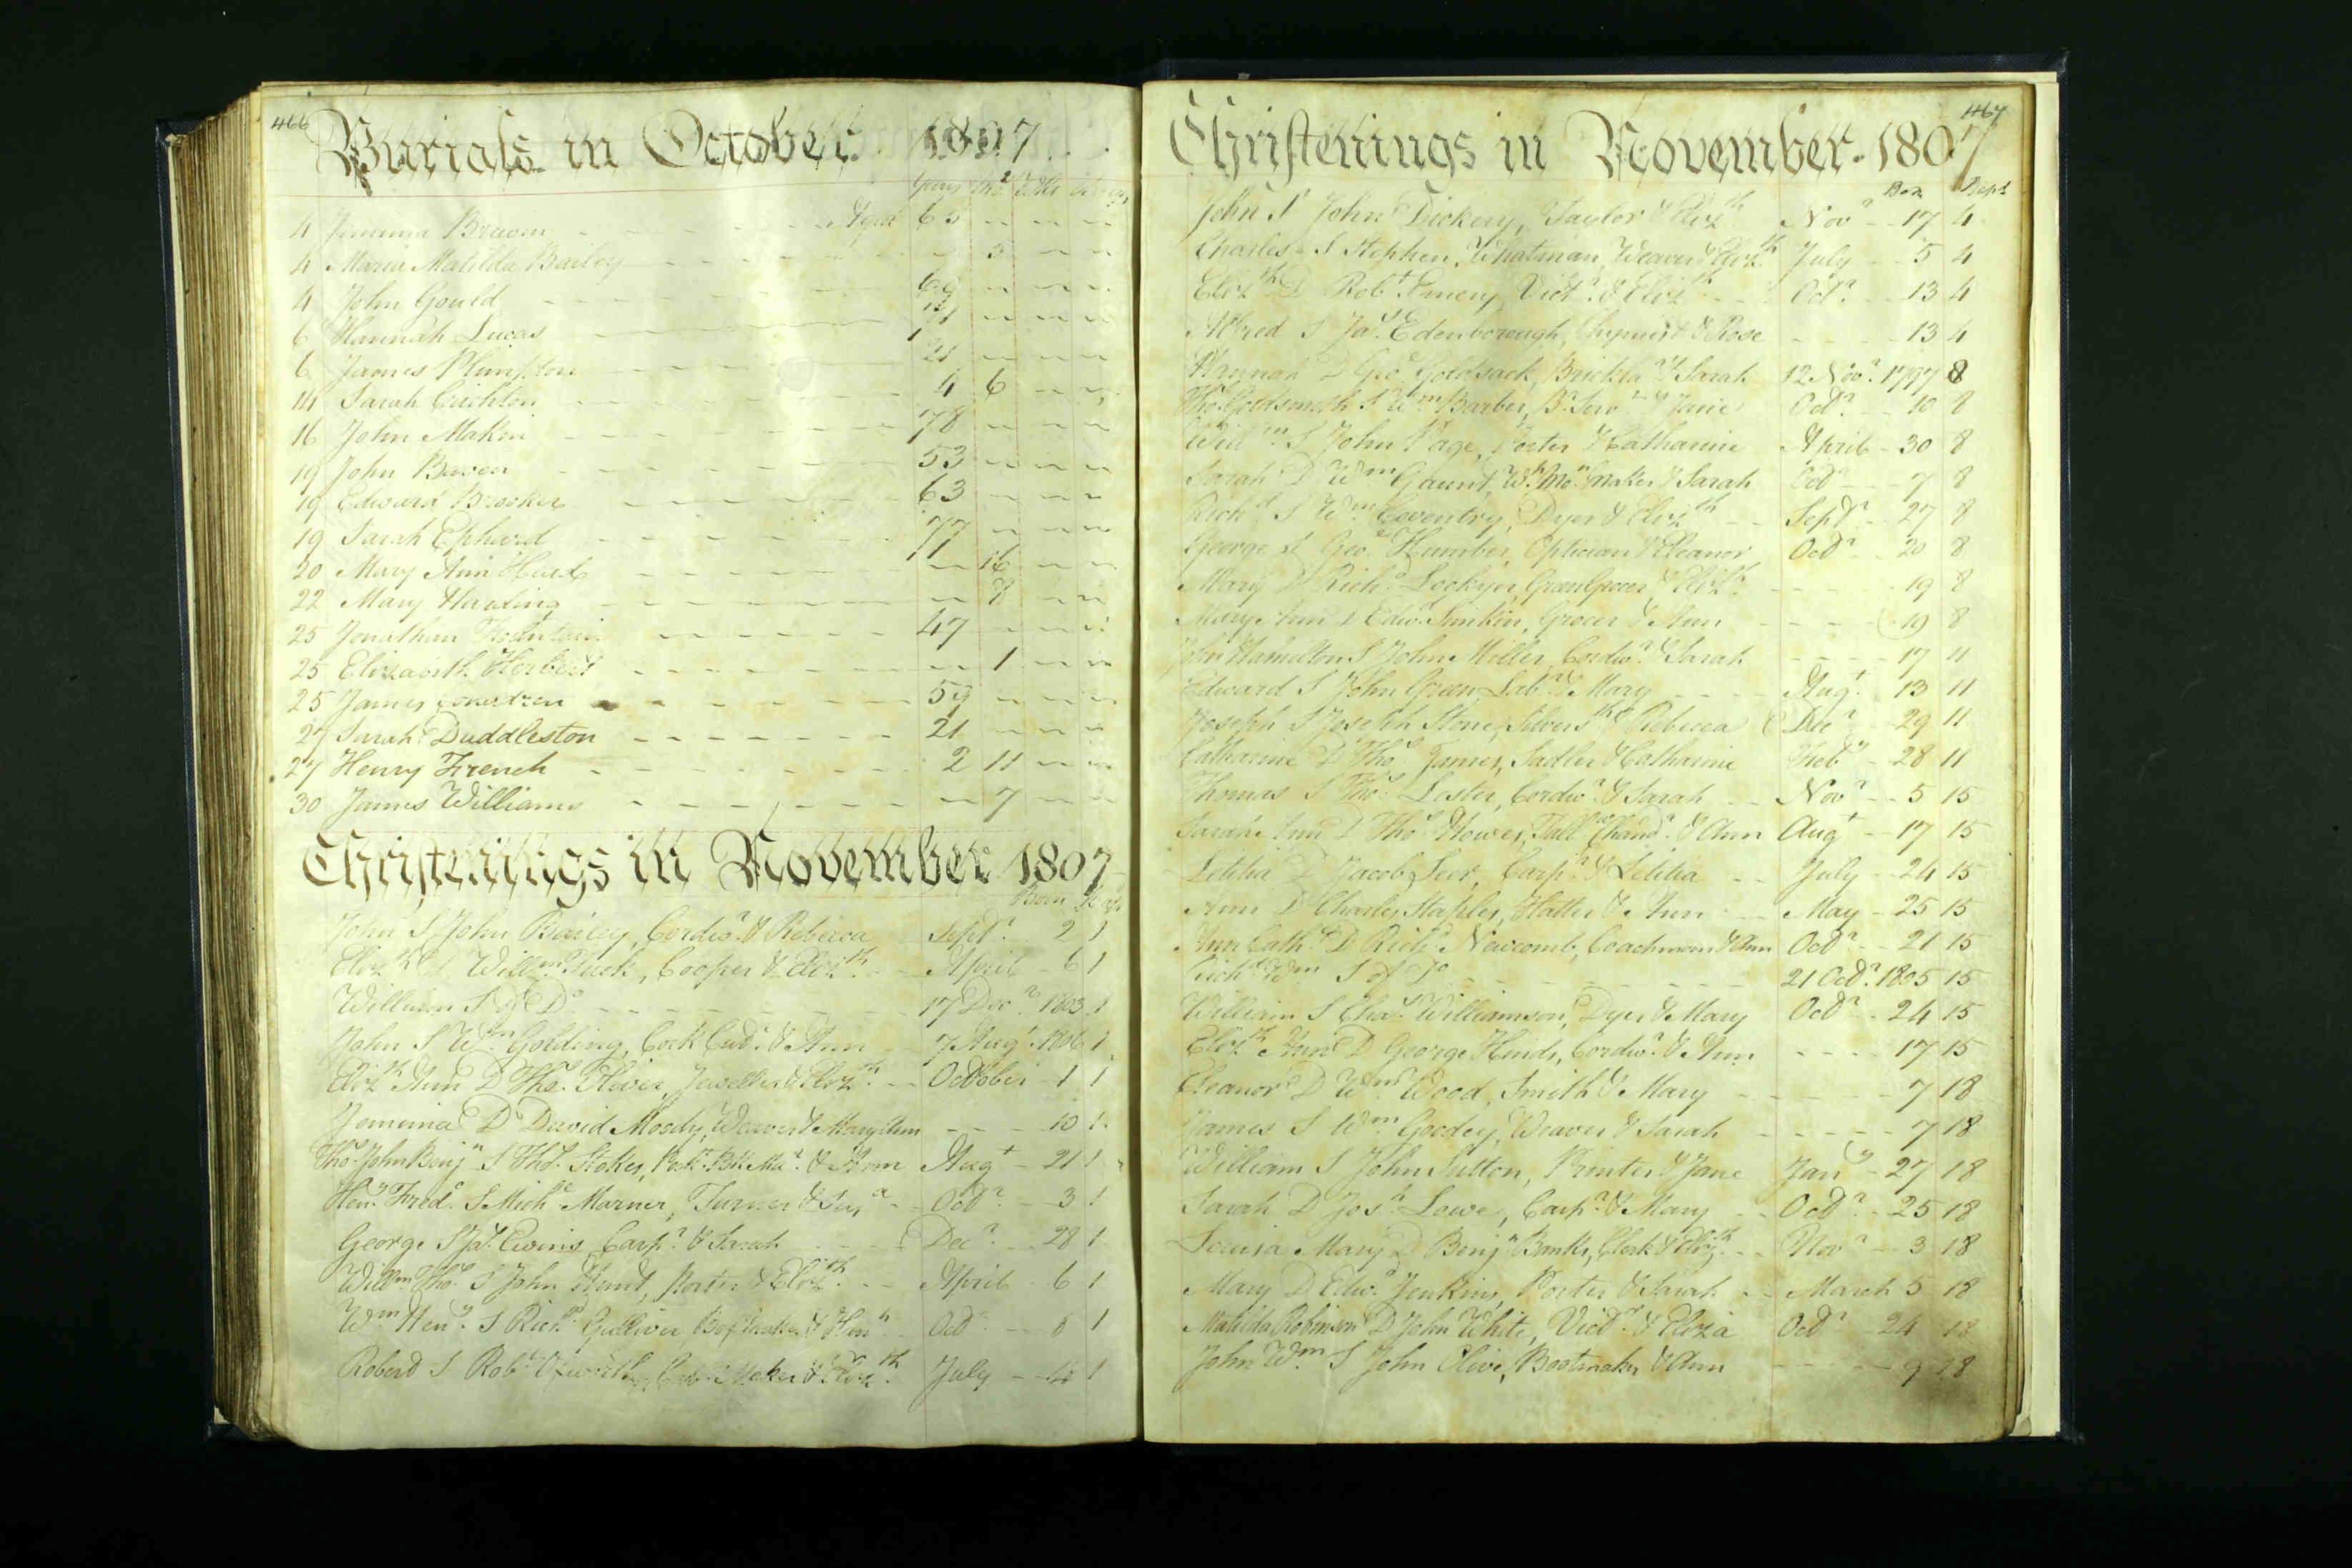 466
Burials in October 1807
Years Mo.s Wks Days
4 Jemima Brown Aged 65
4 Maria Matilda Bailey 5
4 John Gould 69
6 Hannah Lucas 71
6 James Plimpton 21
14 Sarah Crichton 4 6
16 John Makin 78
19 John Baven 53
19 Edward Brooker 63
19 Sarah Ephard 77
20 Mary Ann Hurd 16
22 Mary Harding 8
25 Jonathan Fountain 47
25 Elizabeth Herbert 1
25 James 59
27 Sarah Duddleston 21
27 Henry French 2 11
30 James Williams 7
Christenings in November 1807
Born Bap
John S John Bailey, Cordwr. & Rebecca Septr. 2 1
Elizth D Willm Tuck, Cooper & Elizth April 6 1
William S of Do 17 Decr. 1803 1
John S Wm Golding, Cork Cutr. & Ann 7 Augt. 1806 1
Elizth Ann D Thos. Oliver, Jeweller & Elizth October 1 1
Jemima D David Moody, Weaver & Mary Ann 10 1
Thos. John Benjn S Thos. Stokes, Pockt. Bk. Mar. & Ann Augt 21 1
Heny. Fredc. S Michl Marner, Turner & Susa Octr. 3 1
George S Jas. Ewins, Carpr. & Sarah Decr. 28 1
Willm Thos. S John Hunt, Porter & Elizth April 6 1
Wm Heny. S Richd Gulliver, Box Maker & Hanh Octr. 8 1
Robert S Robt. Maker & Elizth July 14 1
467
Christenings in November 1807
Born Bapt
John S John Dickery, Taylor & Elizth Novr 17 4
Charles S Stephen Whatman, Weaver & Elizth July 5 4
Elizth D Robt Emery, Victr. & Elizth Octr. 13 4
Alfred S Jas. Edenborough, Chymist & Rose 13 4
Hannah D Geo Goldsack, Bricklar & Sarah 12 Novr. 1797 8
Thos. Goldsmith S Wm Barber, Br. Servt & Jane Octr. 10 8
Willm S John Page, Porter & Catharine April 30 8
Sarah D Wm Gaunt, Wh. Mon. maker & Sarah Octr 7 8
Richd. S Wm Coventry, Dyer & Elizth Septr 27 8
George S Geo. Humber, Optician & Eleanor Octr 20 8
Mary D Richd. Lockyer, Green Grocer & Elizth 19 8
Mary Ann D Edwd. Simkin, Grocer & Ann 19 8
John Hamilton S John Miller, Cordwr. & Sarah 17 11
Edward S John Green Labr & Mary Augt. 13 11
Joseph S Joseph Stone, Silversth & Rebecca Decr 29 11
Catharine D Thos. James, Sadler & Catharine Feby 28 11
Thomas S Thos. Lester, Cordwr. & Sarah Novr 5 15
Sarah Ann D Thos Howes, Tallw Chandr. & Ann Augt 17 15
Letitia D Jacob Seer, Carpr. & Letitia July 24 15
Ann D Charles Staples, Hatter & Ann May 25 15
Ann Cathe D Richd Newcomb, Coachman & Ann Octr 21 15
Richd Wm S of Do 21 Octr. 1805 15
William S Chas. Williamson, Dyer & Mary Octr. 24 15
Elizth Ann D George Hinds, Cordwr. & Ann 17 15
Eleanor D Wm. Wood, Smith & Mary 7 18
James S Wm Goodey, Weaver & Sarah 7 18
William S John Sutton, Printer & Jane Jany 27 18
Sarah D Josh. Lowe, Carpr. & Mary Octr. 25 18
Louisa Mary D Benjn Banks, Clerk & Elizth Novr 3 18
Mary D Edwd. Jenkins, Porter & Sarah March 5 18
Matilda Robinson D John White, Victr. & Eliza Octr 24 18
John Wm. S John Olive, Bootmaker & Ann 9 18